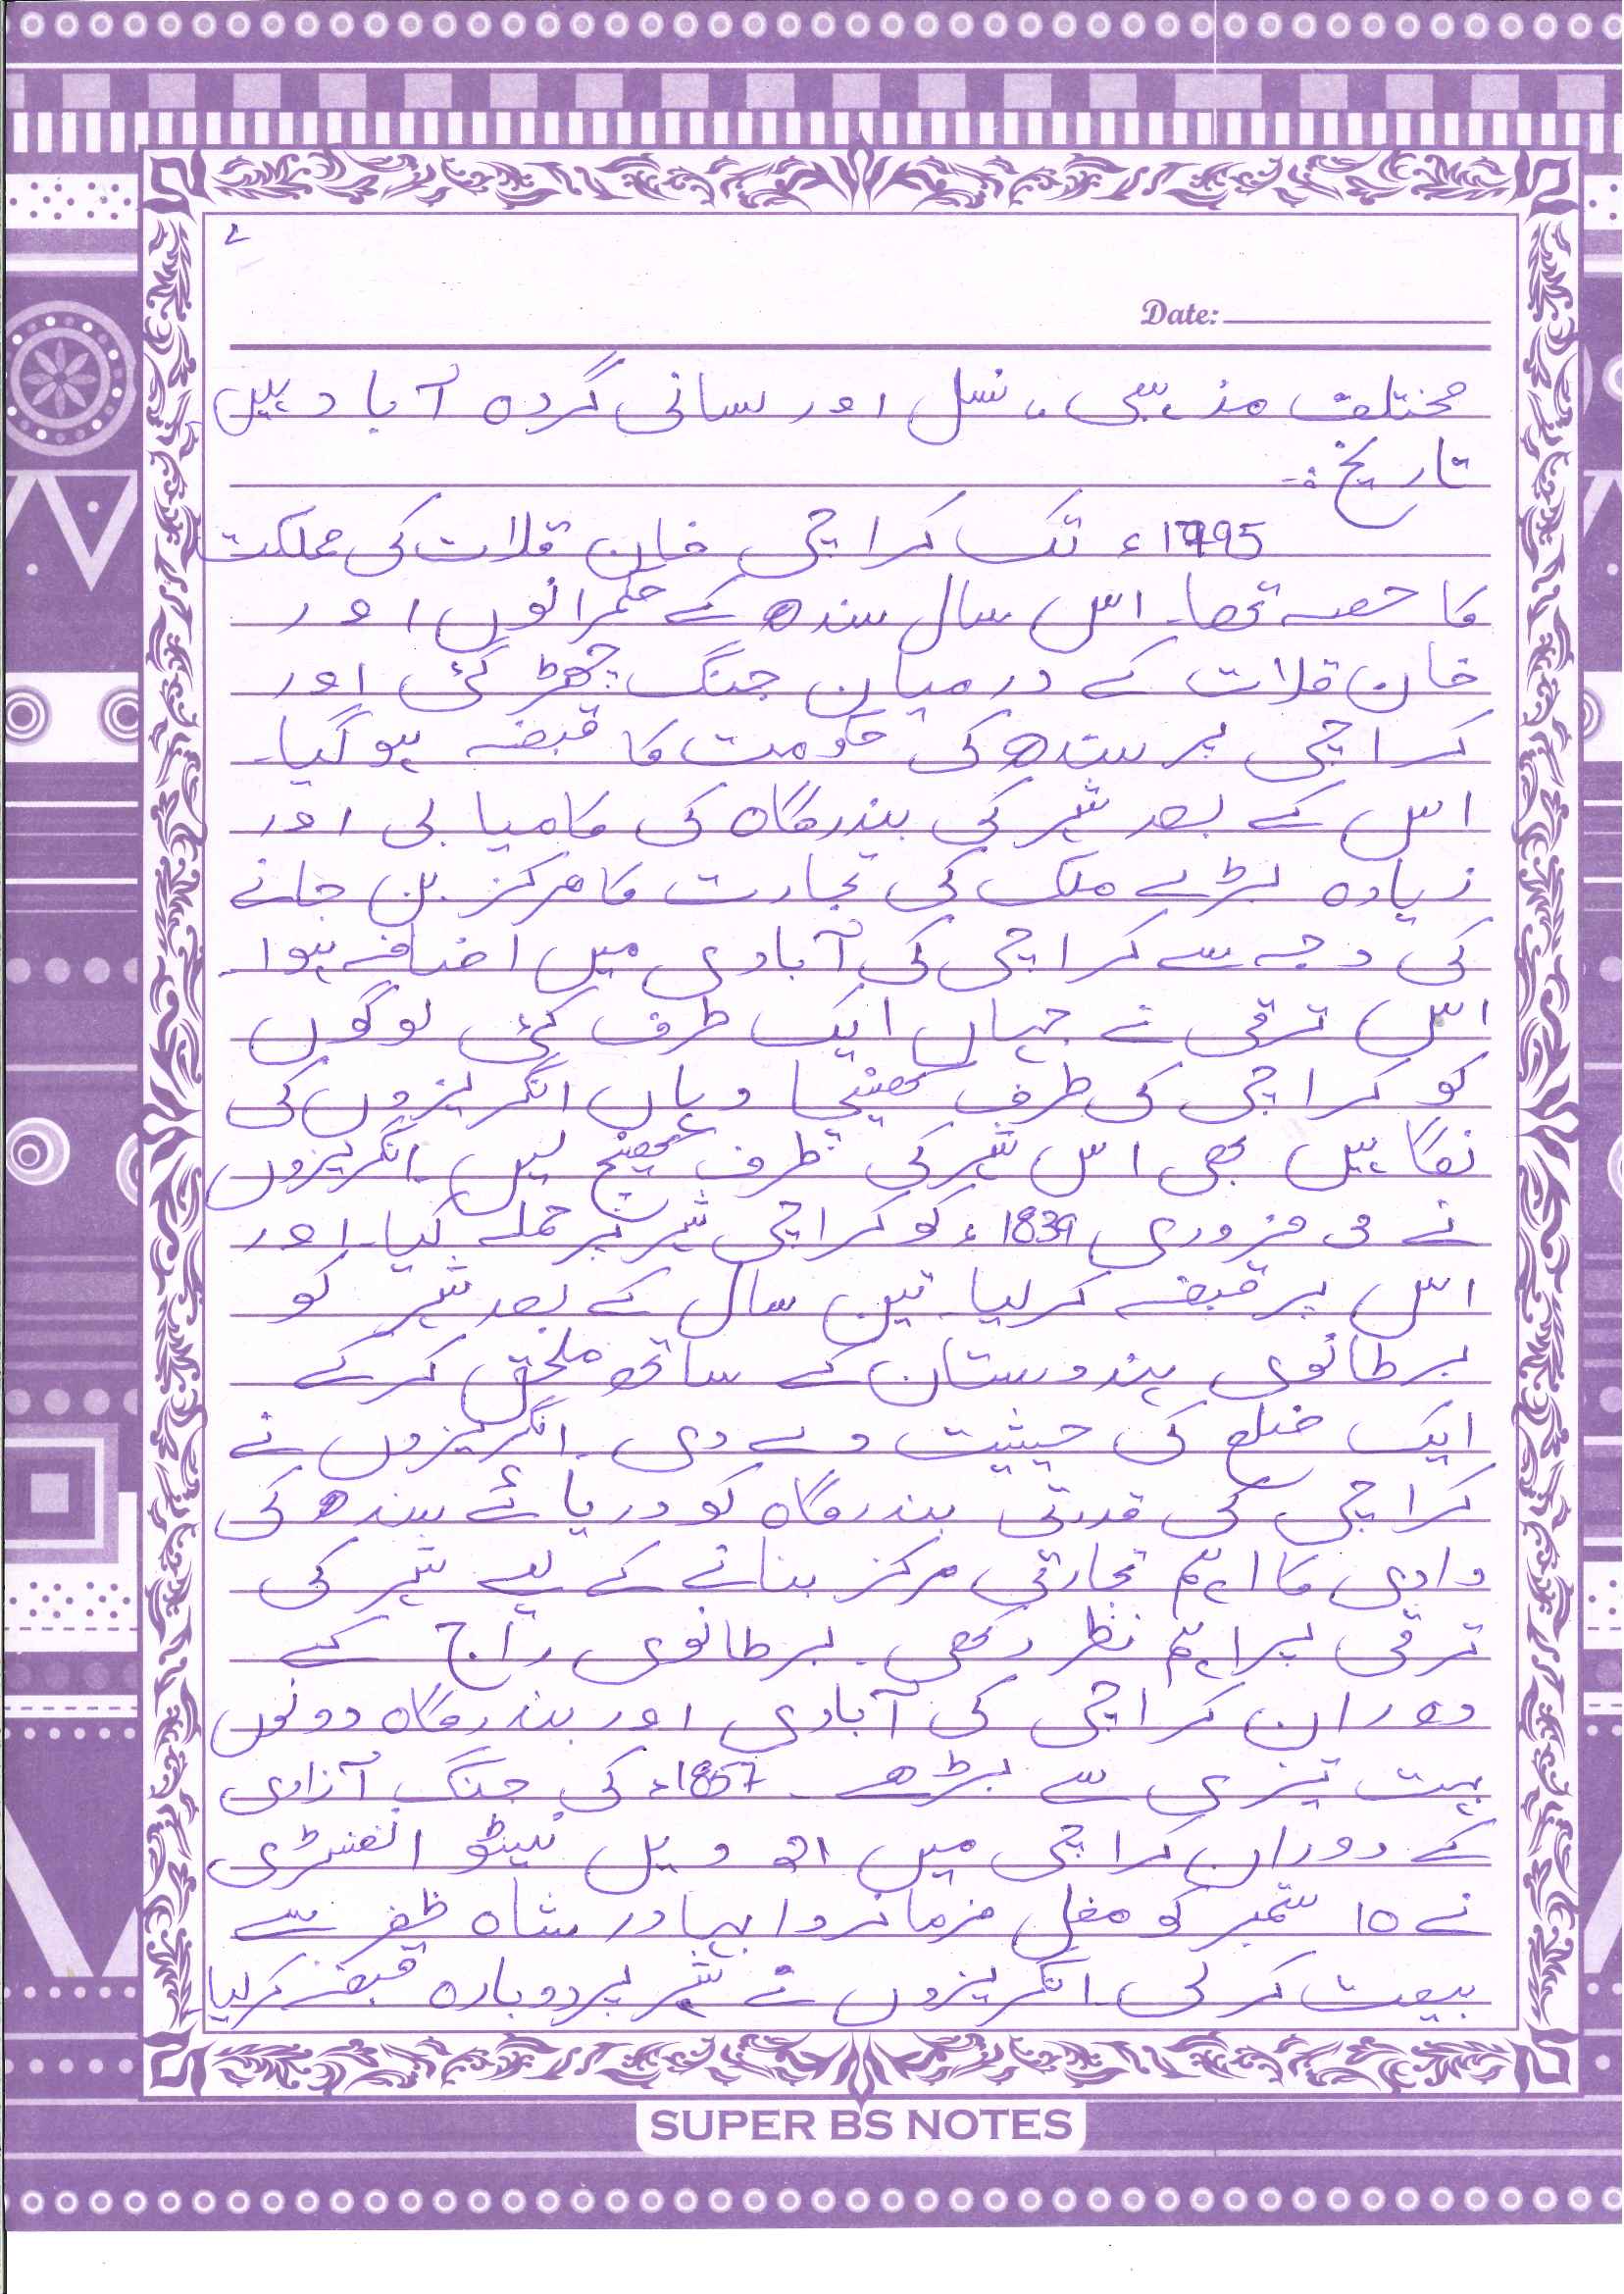 Date:
مختلف مذہبی، نسل اور لسانی گروہ آباد ہیں
تاریخ:-
1795ء تک کراچی خان قلات کی مملکت
کا حصہ تھا۔ اس سال سندھ کے حکمرانوں اور
خان قلات کے درمیان جنگ چھڑ گئی اور
کراچی پر سندھ کی حکومت کا قبضہ ہو گیا۔
اس کے بعد شہر کی بندرگاہ کی کامیابی اور
زیادہ بڑے ملک کی تجارت کا مرکز بن جانے
کی وجہ سے کراچی کی آبادی میں اضافہ ہوا۔
اس ترقی نے جہاں ایک طرف کئی لوگوں
کو کراچی کی طرف کھینچا وہاں انگریزوں کی
نگاہیں بھی اس شہر کی طرف کھینچ لیں۔ انگریزوں
نے 3 فروری 1839ء کو کراچی شہر پر حملہ کیا۔ اور
اس پر قبضہ کر لیا۔ تین سال کے بعد شہر کو
برطانوی ہندوستان کے ساتھ ملحق کر کے
ایک ضلع کی حیثیت دے دی۔ انگریزوں نے
کراچی کی قدرتی بندرگاہ کو دریائے سندھ کی
وادی کا اہم تجارتی مرکز بنانے کے لیے شہر کی
ترقی پر اہم نظر رکھی۔ برطانوی راج کے
دوران کراچی کی آبادی اور بندرگاہ دونوں
بہت تیزی سے بڑھے۔ 1857ء کی جنگ آزادی
کے دوران کراچی میں 21 ویں نیٹو انفنٹری
نے 10 ستمبر کو مغل فرمانروا بہادر شاہ ظفر سے
بیعت کر لی۔ انگریزوں نے شہر پر دوبارہ قبضہ کر لیا
SUPER BS NOTES